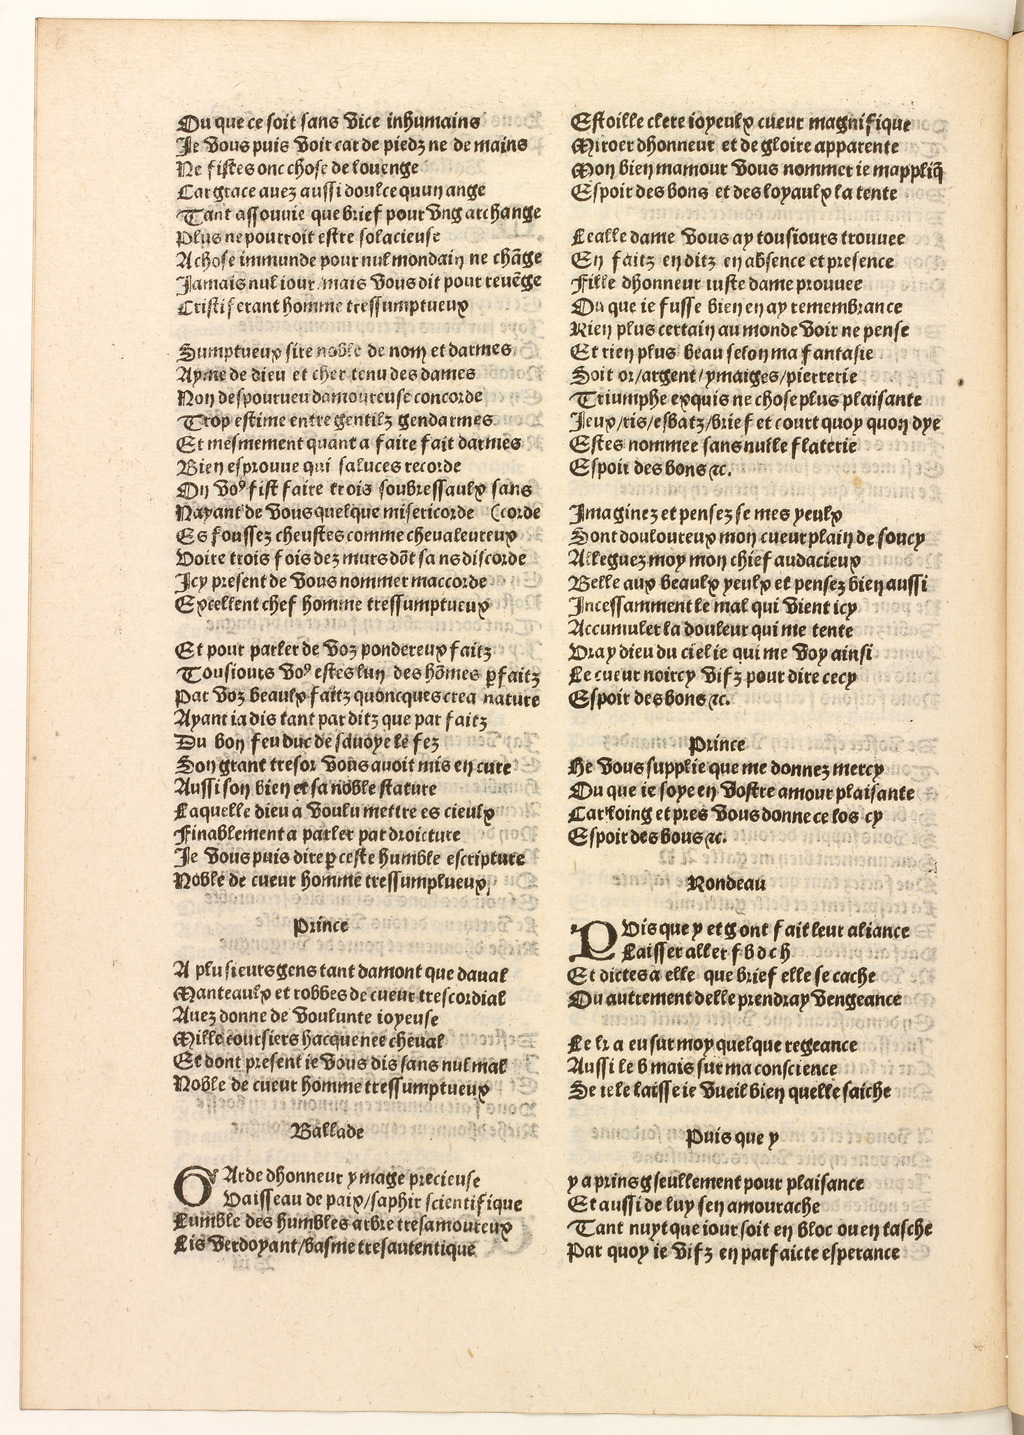 Ou que ce soit sans vice inhumains
Je vous puis voir car de piedz ne de mains
Ne fistes onc chose de louenge
Car grace auez aussi doulce quun ange
Tant assouuie que brief pour vng archange
Plus ne pourroit estre solacieuse
A chose immunde pour nul mondain ne chãge
Jamais nul iour/mais vous dit pour reuẽge
Cristiferant homme tressumptueux
Sumptueux sire noble de nom et darmes
Ayme de dieu et cher tenu des dames
Non despourueu damoureuse concorde
Trop estime entre gentilz gendarmes
Et mesmement quant a faire fait darmes
Bien esprouue qui saluces recorde
On voꝰ fist faire trois soubressaulx sans
Nayant de vous quelque misericorde (corde
Es foussez cheustes comme cheualeureux
Voire trois fois dez murs dõt sans discorde
Icy present de vous nommer maccorde
Excellent chef homme tressumptueux
Et pour parler de voz pondereux faitz
Tousiours voꝰ estes lun des hõmes ꝑfaitz
Par voz beaulx faitz quoncques crea nature
Ayant iadis tant par ditz que par faitz
Du bon feu duc de sauoye le fez
Son grant tresor vous auoit mis en cure
Aussi son bien et sa noble stature
Laquelle dieu a voulu mettre es cieulx
Finablement a parler par droicture
Je vous puis dire ꝑ ceste humble escripture
Noble de cueur homme tressumptueux
Prince
A plusieurs gens tant damont que daual
Manteaulx et robbes de cueur trescordial
Auez donne de voulunte ioyeuse
Mille coursiers hacquenee cheual
Et dont present ie vous dis sans nul mal
Noble de cueur homme tressumptueux
Ballade
GArde dhonneur ymage precieuse
Vaisseau de paix/saphir scientifique
Lumble des humbles arbre tresamoureux
Lis verdoyant/basme tresautentique
Estoille clere ioyeulx cueur magnifique
Miroer dhonneur et de gloire apparente
Mon bien mamour vous nommer ie mappliq̃
Espoir des bons et des loyaulx la tente
Lealle dame vous ay tousiours trouuee
En faitz en ditz en absence et presence
Fille dhonneur iuste dame prouuee
Ou que ie fusse bien en ay remembrance
Rien plus certain au monde voir ne pense
Et rien plus beau selon ma fantasie
Soit or/argent/ymaiges/pierrerie
Triumphe exquis ne chose plus plaisante
Jeux/ris/esbatz/brief et court quoy quon dye
Estes nommee sans nulle flaterie
Espoir des bons ⁊c.
Imaginez et pensez se mes yeulx
Sont douloureux mon cueur plain de soucy
Alleguez moy mon chief audacieux
Belle aux beaulx yeulx et pensez bien aussi
Incessamment le mal qui vient icy
Accumuler la douleur qui me tente
Vray dieu du ciel ie qui me voy ainsi
Le cueur noircy vifz pour dire cecy
Espoir des bons ⁊c.
Prince
He vous supplie que me donnez mercy
Ou que ie soye en vostre amour plaisante
Car loing et pres vous donne ce los cy
Espoir des bous ⁊c.
Rondeau
PVis que y et g ont fait leur aliance
Laisser aller f b d c h
Et dictes a elle que brief elle se cache
Ou autrement delle prendray vengeance
Le lr a eu sur moy quelque regeance
Aussi le b mais sur ma conscience
Se ie le laisse ie vueil bien quelle saiche
Puis que y
y a prins g seullement pour plaisance
Et aussi de luy sen amourache
Tant nuyt que iour soit en bloc ou en tasche
Par quoy ie vifz en parfaicte esperance